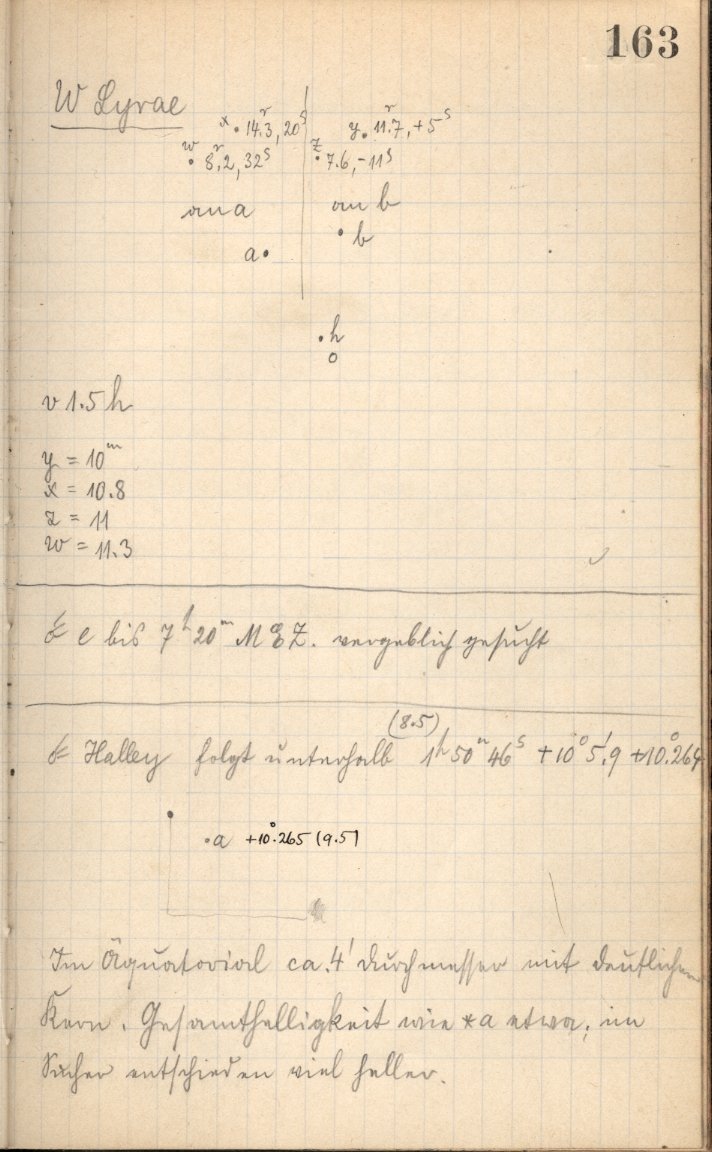 163
W Lyrae
x 14.3r, 20s
y 11.7r, +5s
w 8r,2, 32s
z 7.6, -11s
an a
an b
b
a
h
v 1.5 h
y = 10m
x = 10.8
z = 11
w = 11.3
☄ e bis 7h 20m M E Z. vergeblich gesucht
(8.5)
☄ Halley folgt unterhalb 1h 50m 46s +10° 5.'9 +10.°264
a +10.°265 (9.5)
Im Äquatorial ca. 4' Durchmesser mit deutlichem
Kern. Gesamthelligkeit wie *a etwa, im
Sucher entschieden viel heller.